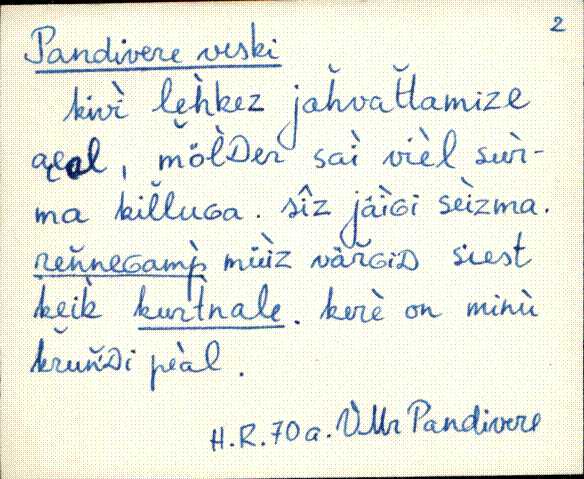 2
Pandivere veski
kivì lèh̀kez jah̆vat̆lamize
aeal, mŏlDer saì vièl sur̀-
ma kil̆luGa. sîz jäìGi sèizma.
ren̆neGamp̀ müìz văr̆GiD siest
keik̀ kurt̀nale. kerè on minù
kr̆un̆Di peàl.
H.R. 70 a. VMr Pandivere